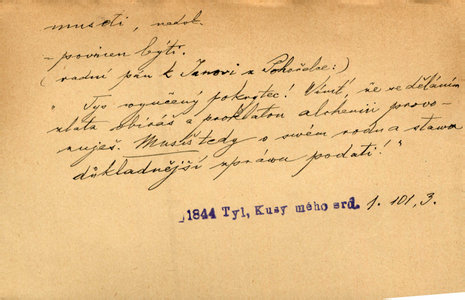 museti, nedok.
- povinen býti.
(radní pán k Janovi z Pohořelce:)
"Tys vyučený pokrytec! Vímť, že se děláním
zlata obíráš a proklatou alchemii provo-
zuješ. Musíš tedy o svém rodu a stavu
důkladnější zprávu podati!"
1844 Tyl, Kusy mého srd. 1. 101, 3.